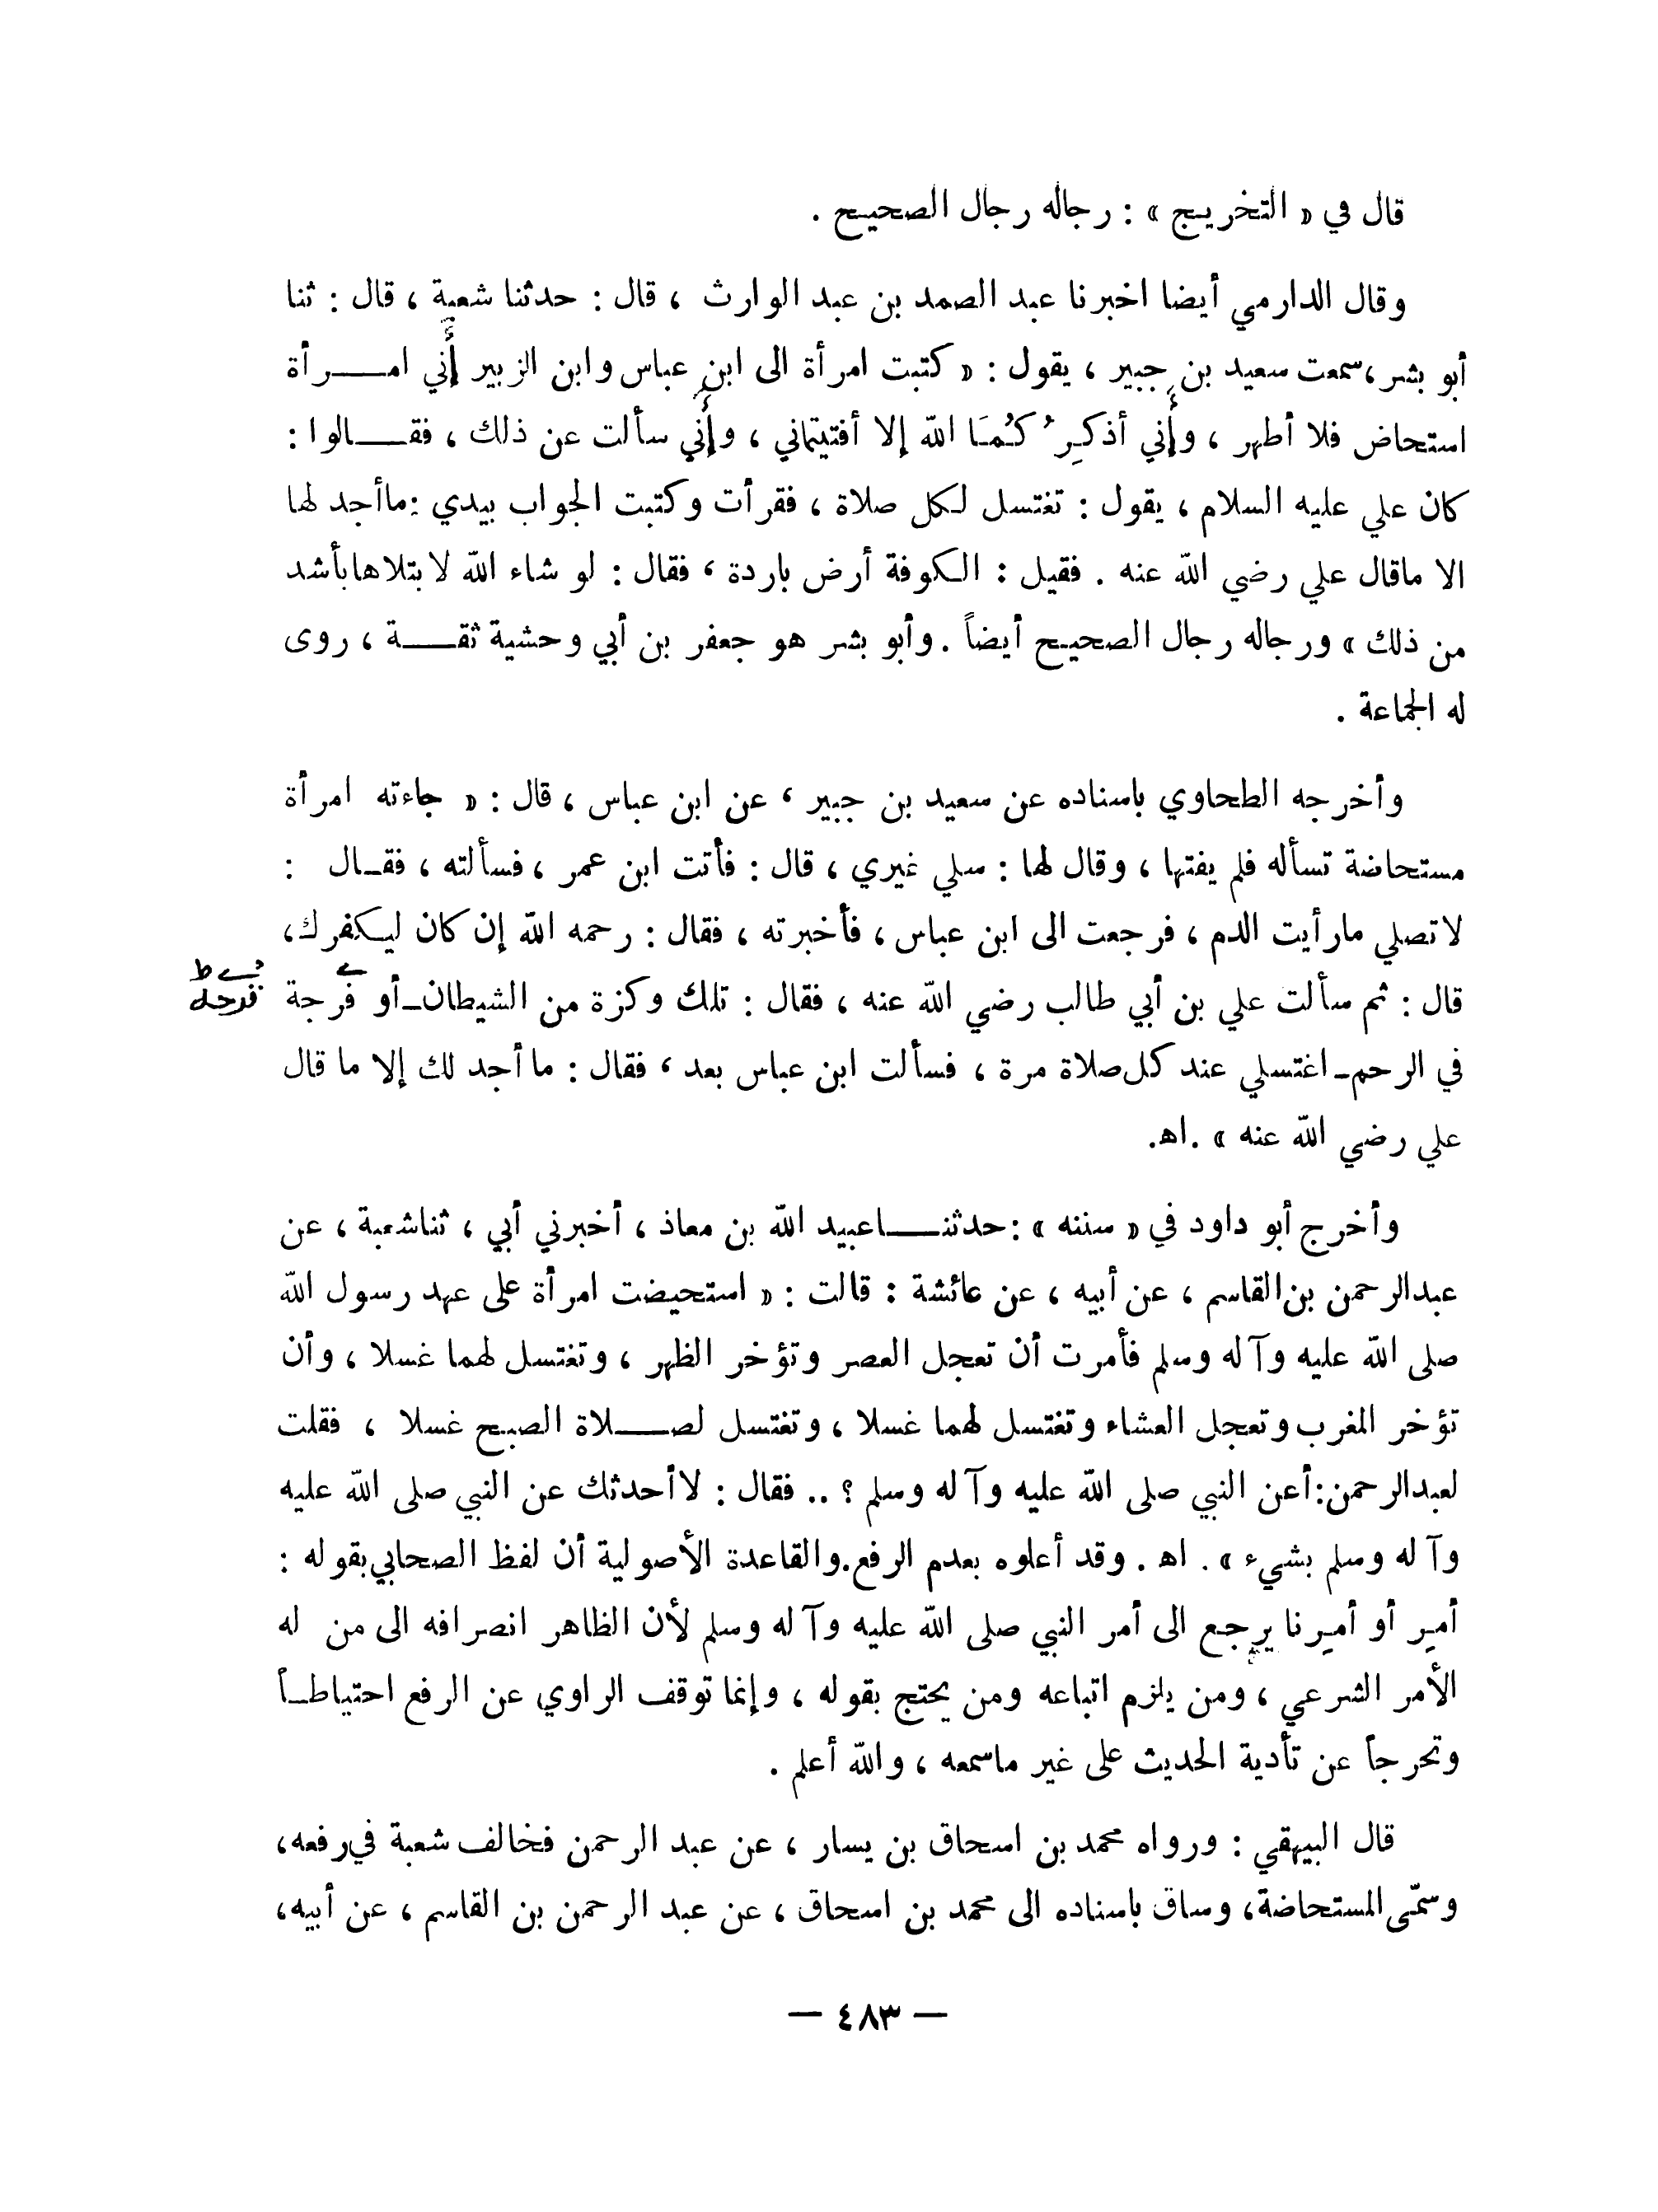 قال في « التخريج » : رجاله رجال الصحيح .
وقال الدارمي أيضا اخبرنا عبد الصمد بن عبد الوارث ، قال : حدثنا شعبة ، قال : ثنا
أبو بشر،سمعت سعيد بن جبير ، يقول : « كتبت امرأة الى ابن عباس وابن الزبير إني امـــرأة
استحاض فلا أطهر ، وإني أذكِرُ كُمَا الله إلا أفتيتماني ، وإني سألت عن ذلك ، فقـــالوا :
كان علي عليه السلام ، يقول : تغتسل لكل صلاة ، فقرأت وكتبت الجواب بيدي :ماأجد لها
الا ماقال علي رضي الله عنه . فقيل : الكوفة أرض باردة ، فقال : لو شاء الله لابتلاهابأشد
من ذلك » ورجاله رجال الصحيح أيضاً . وأبو بشر هو جعفر بن أبي وحشية ثقـــة ، روى
له الجماعة .
وأخرجه الطحاوي باسناده عن سعيد بن جبير ، عن ابن عباس ، قال : « جاءته امرأة
مستحاضة تسأله فلم يفتها ، وقال لها : سلي غيري ، قال : فأتت ابن عمر ، فسألته ، فقـال :
لاتصلي مارأيت الدم ، فرجعت الى ابن عباس ، فأخبرته ، فقال : رحمه الله إن كان ليكفرك،
قال : ثم سألت علي بن أبي طالب رضي الله عنه ، فقال : تلك وكزة من الشيطان ـ أو فرجة
في الرحم ـ اغتسلي عند كل صلاة مرة ، فسألت ابن عباس بعد ، فقال : ما أجد لك إلا ما قال
علي رضي الله عنه » .اهـ.
وأخرج أبو داود في « سننه » :حدثنـــاعبيد الله بن معاذ ، أخبرني أبي ، ثناشعبة ، عن
عبدالرحمن بن القاسم ، عن أبيه ، عن عائشة : قالت : « استحيضت امرأة على عهد رسول الله
صلى الله عليه وآله وسلم فأمرت أن تعجل العصر وتؤخر الظهر ، وتغتسل لهما غسلا ، وأن
تؤخر المغرب وتعجل العشاء وتغتسل لهما غسلا ، وتغتسل لصـــلاة الصبح غسلا ، فقلت
لعبدالرحمن:أعن النبي صلى الله عليه وآله وسلم ؟ .. فقال : لاأحدثك عن النبي صلى الله عليه
وآله وسلم بشيء » . اهـ . وقد أعلوه بعدم الرفع.والقاعدة الأصولية أن لفظ الصحابي بقوله :
أمِر أو أمِرنا يرجع الى أمر النبي صلى الله عليه وآله وسلم لأن الظاهر انصرافه الى من له
الأمر الشرعي ، ومن يلزم اتباعه ومن يحتج بقوله ، وإنما توقف الراوي عن الرفع احتياطـاً
وتحرجاً عن تأدية الحديث على غير ماسمعه ، والله أعلم .
قال البيهقي : ورواه محمد بن اسحاق بن يسار ، عن عبد الرحمن فخالف شعبة في رفعه،
وسمّى المستحاضة، وساق باسناده الى محمد بن اسحاق ، عن عبد الرحمن بن القاسم ، عن أبيه،
— ٤٨٣ —